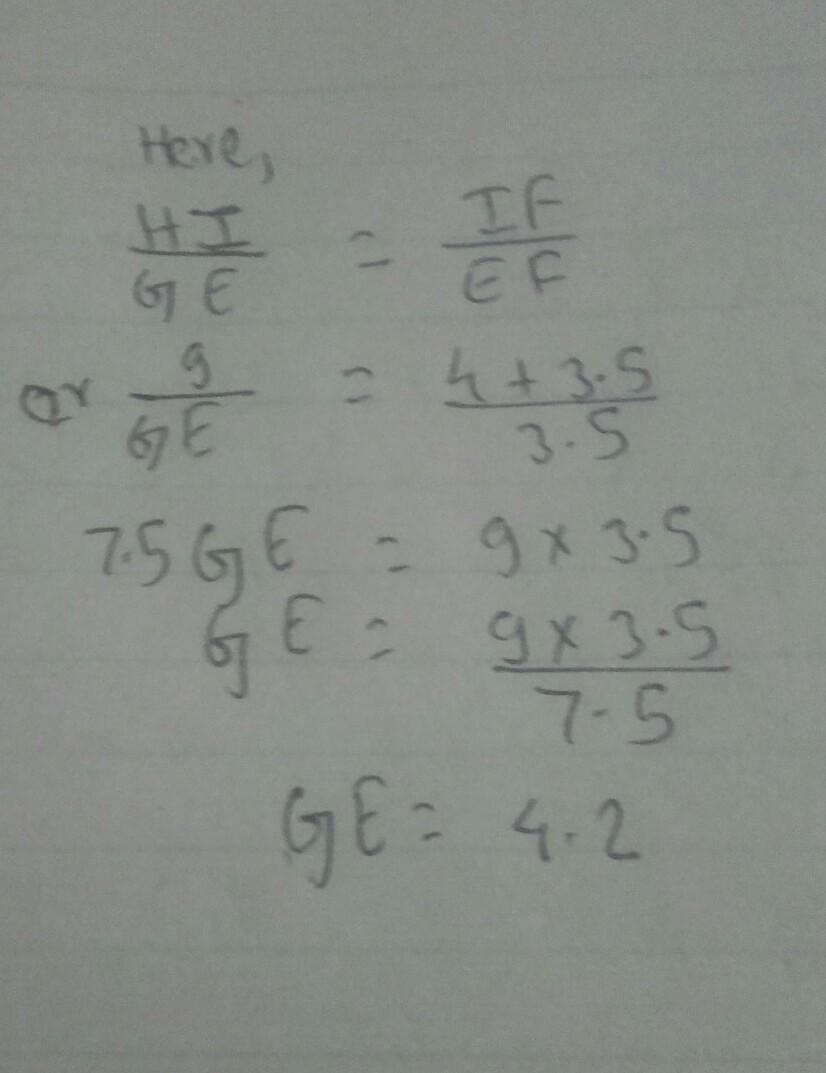 Here,
HI/GE = IF/EF
or 9/GE = 4+3.5/3.5
7.5GE = 9×3.5
GE = 9×3.5/7.5
GE = 4.2